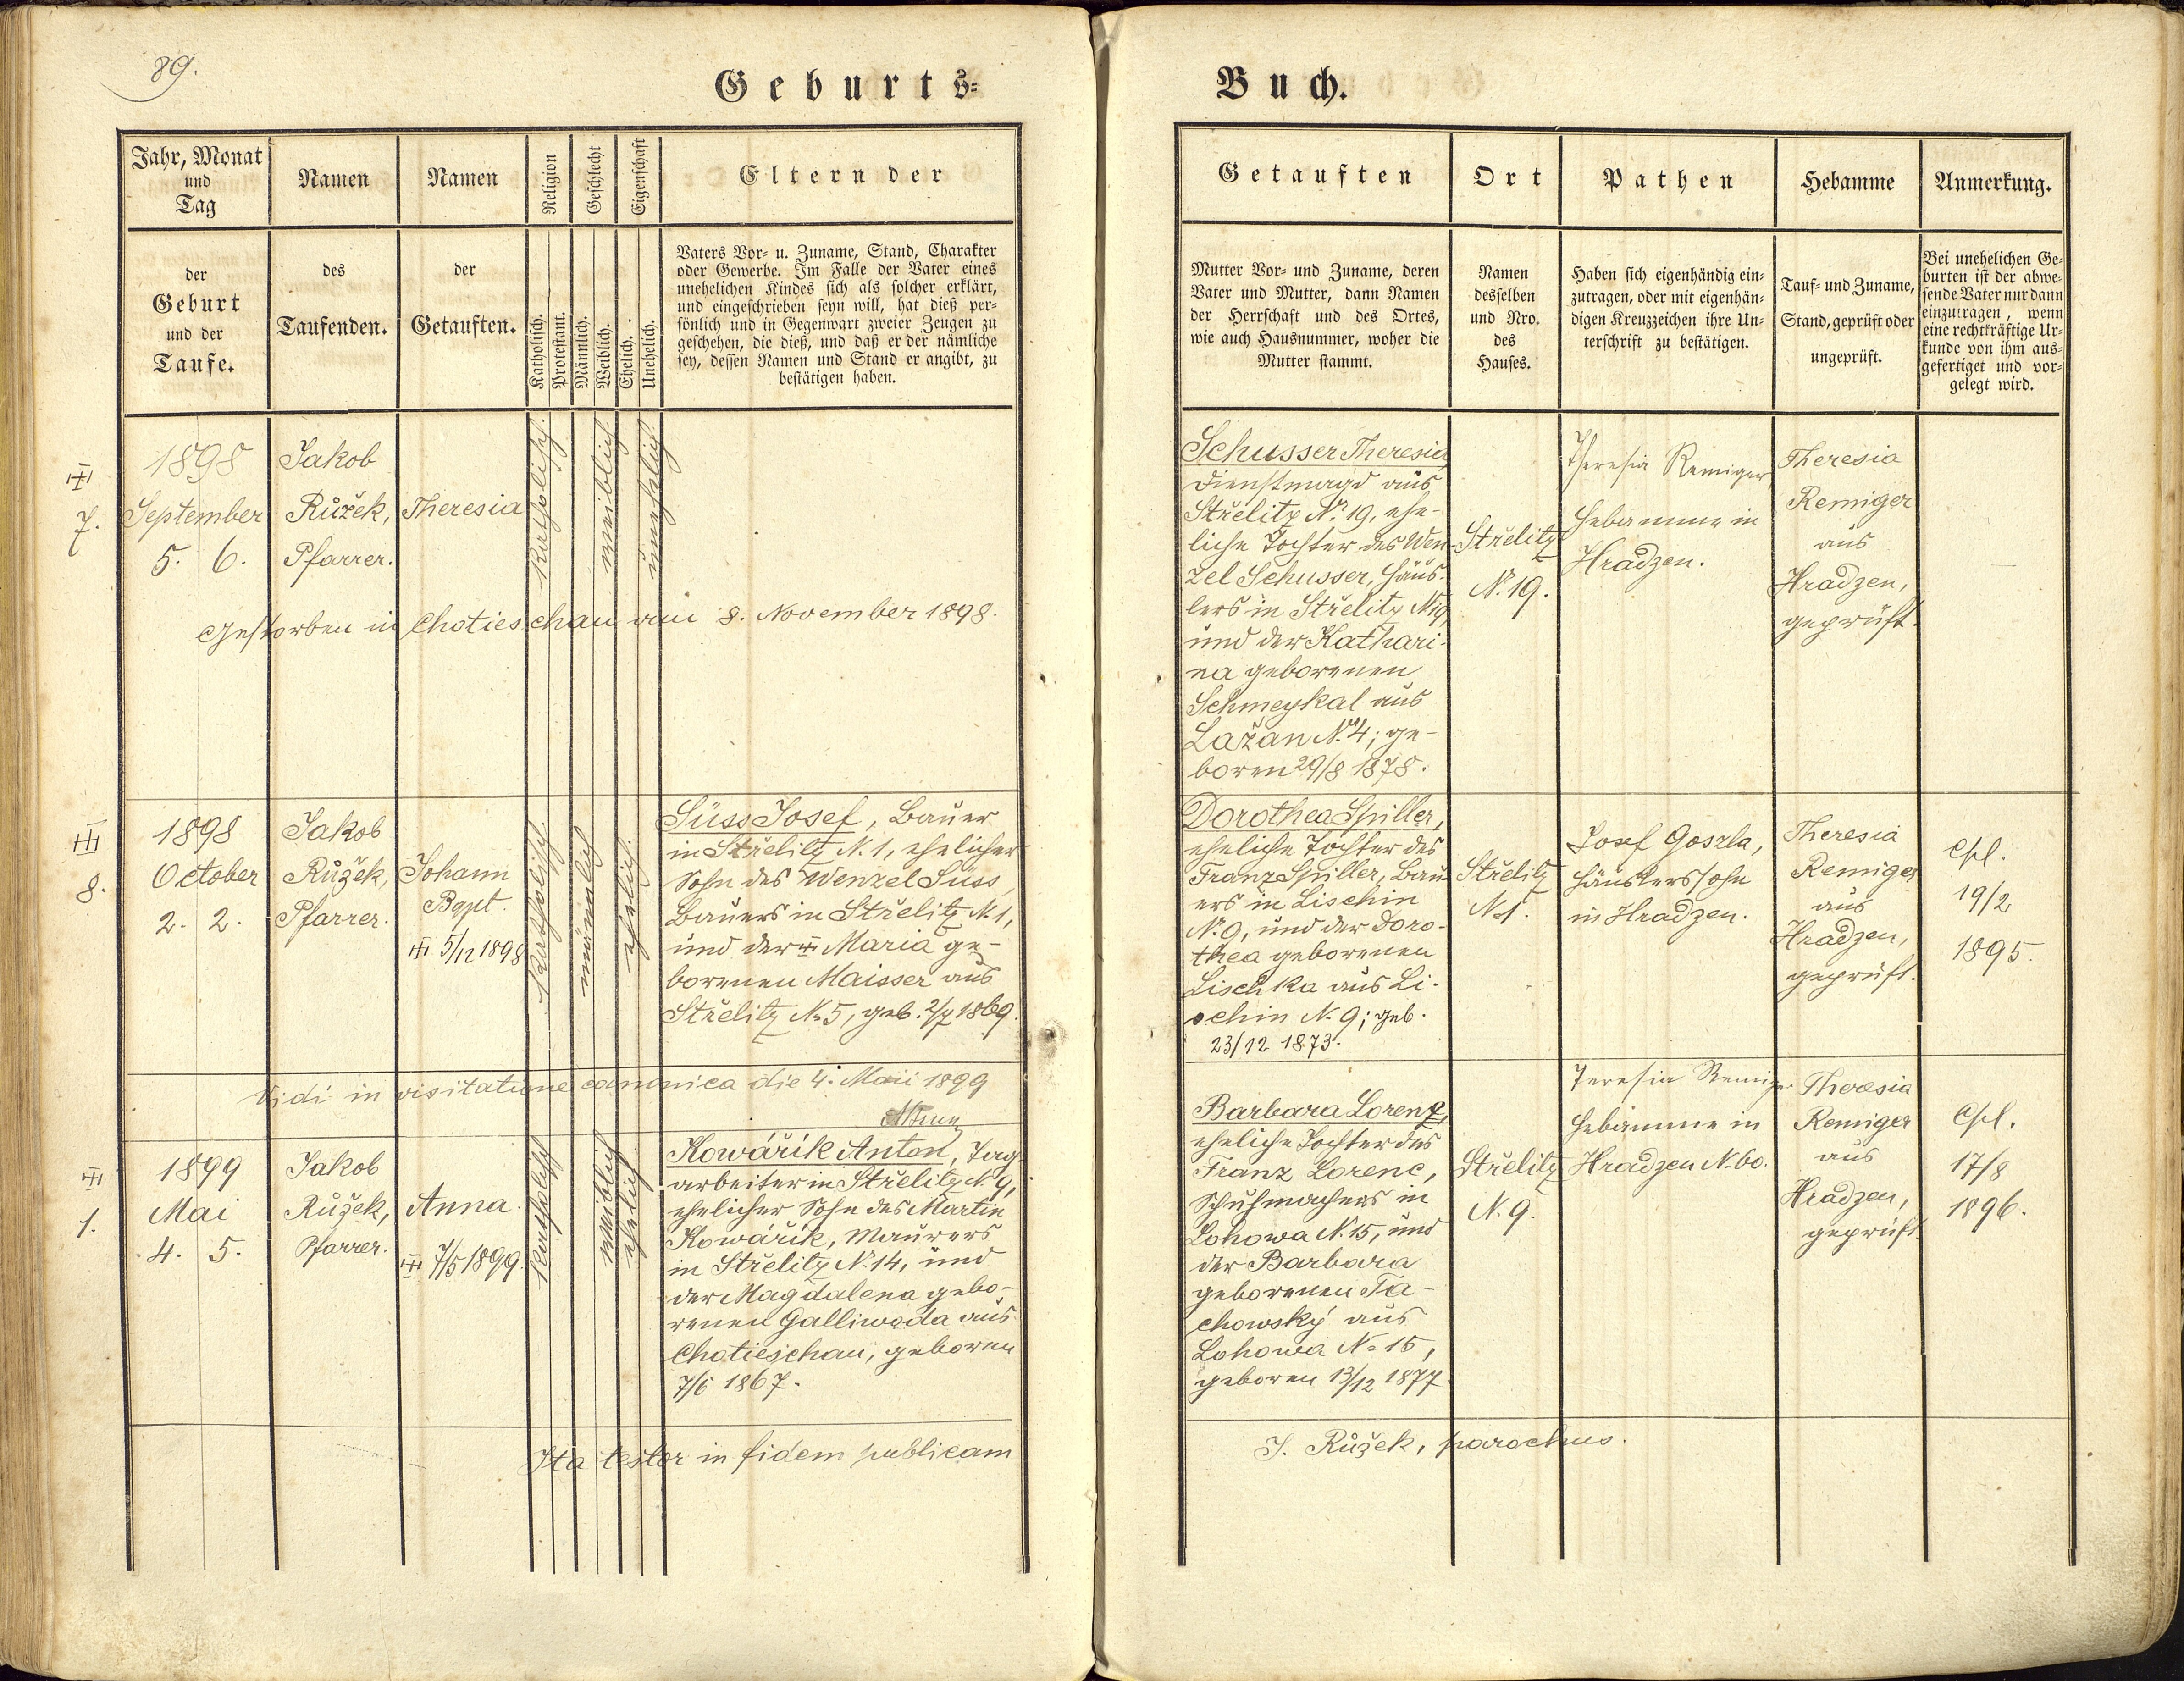 89.
Geburts=
Jahr, Monat
und
Tag
Namen
Namen
Religion
Geschlecht
Eigenschaft
Eltern der
der
Geburt
und der
Taufe.
des
Taufenden.
der
Getauften.
Katholisch.
Protestant.
Männlich.
Weiblich.
Ehelich.
Unehelich.
Vaters Vor- u. Zuname, Stand, Charakter
oder Gewerbe. Im Falle der Vater eines
unehelichen Kindes sich als solcher erklärt,
und eingeschrieben seyn will, hat dieß per-
sönlich und in Gegenwart zweier Zeugen zu
geschehen, die dieß, und daß er der nämliche
sey, dessen Namen und Stand er angibt, zu
bestätigen haben.
7.
1898
September
5. 6.
Jakob
Růžek,
Pfarrer.
Theresia
katholisch.
weiblich.
unehelich.
Gestorben in Chotieschau am 8. November 1898.
8.
1898
October
2. 2.
Jakob
Růžek,
Pfarrer.
Johann
Bapt.
5/12 1898
katholisch.
männlich
ehelich.
Süss Josef, Bauer
in Střelitz N. 1, ehelicher
Sohn des Wenzel Süss,
Bauers in Střelitz N. 1,
und der Maria ge-
borenen Maisser aus
Střelitz N. 5, geb. 2/7 1869.
Vidi in visitatione canonica die 4. Maii 1899
1.
1899
Mai
4. 5.
Jakob
Růžek,
Pfarrer.
Anna.
7/5 1899.
katholisch
weiblich
ehelich
Kowářík Anton, Tag-
arbeiter in Střelitz N. 9,
ehelicher Sohn des Martin
Kowářík, Maurers
in Střelitz N. 14, und
der Magdalena gebo-
renen Galliwoda aus
Chotieschau, geboren
7/6 1867.
Ita testor in fidem publicam
Buch.
Getauften
Ort
Pathen
Hebamme
Anmerkung.
Mutter Vor- und Zuname, deren
Vater und Mutter, dann Namen
der Herrschaft und des Ortes,
wie auch Hausnummer, woher die
Mutter stammt.
Namen
desselben
und Nro.
des
Hauses.
Haben sich eigenhändig ein-
zutragen, oder mit eigenhän-
digen Kreuzzeichen ihre Un-
terschrift zu bestätigen.
Tauf- und Zuname,
Stand, geprüft oder
ungeprüft.
Bei unehelichen Ge-
burten ist der abwe-
sende Vater nur dann
einzutragen, wenn
eine rechtkräftige Ur-
kunde von ihm aus-
gefertiget und vor-
gelegt wird.
Schusser Theresia,
Dienstmagd aus
Střelitz N. 19, ehe-
liche Tochter des Wen-
zel Schusser, Häus-
lers in Střelitz N 19,
und der Kathari-
na geborenen
Schmeykal aus
Lažan N. 4; ge-
boren 29/8 1878.
Střelitz
N. 19.
Theresia Remiger
Hebamme in
Hradzen.
Theresia
Remiger
aus
Hradzen,
geprüft.
Dorothea Spiller,
eheliche Tochter des
Franz Spiller, Bau-
ers in Lischin
N. 9, und der Doro-
thea geborenen
Lischka aus Li-
schin N. 9; geb.
23/12 1873.
Střelitz
N. 1.
Josef Goszla,
Häuslerssohn
in Hradzen.
Theresia
Remiger
aus
Hradzen,
geprüft.
Cpl.
19/2
1895.
Barbara Lorenz,
eheliche Tochter des
Franz Lorenc,
Schuhmachers in
Lohowa N. 15, und
der Barbara
geborenen Ta-
chowský aus
Lohowa N. 15,
geboren 13/12 1877
Střelitz
N. 9.
Teresia Remiger
Hebamme in
Hradzen N. 60.
Theresia
Remiger
aus
Hradzen,
geprüft.
Cpl.
17/8
1896.
J. Růžek, parochus.